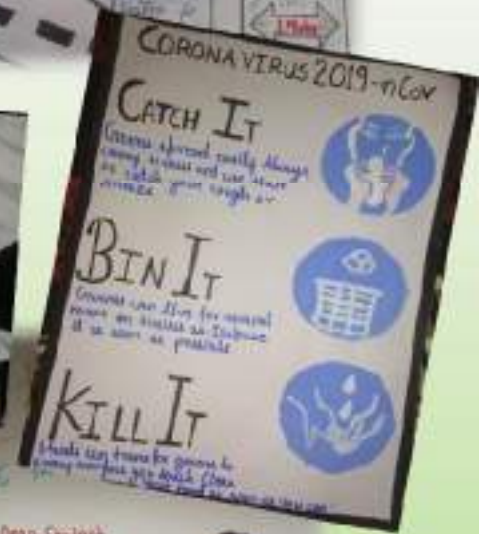 1 Meter
CORONA VIRUS 2019-nCoV
CATCH IT
Germs spread easily Always
carry tissues and use them
to catch your cough or
sneeze
BIN IT
Germs can live for several
hours on tissues so Dispose
it as soon as possible
KILL IT
Hands can transfer germs to
every surface you touch Clean
hand as soon as you can